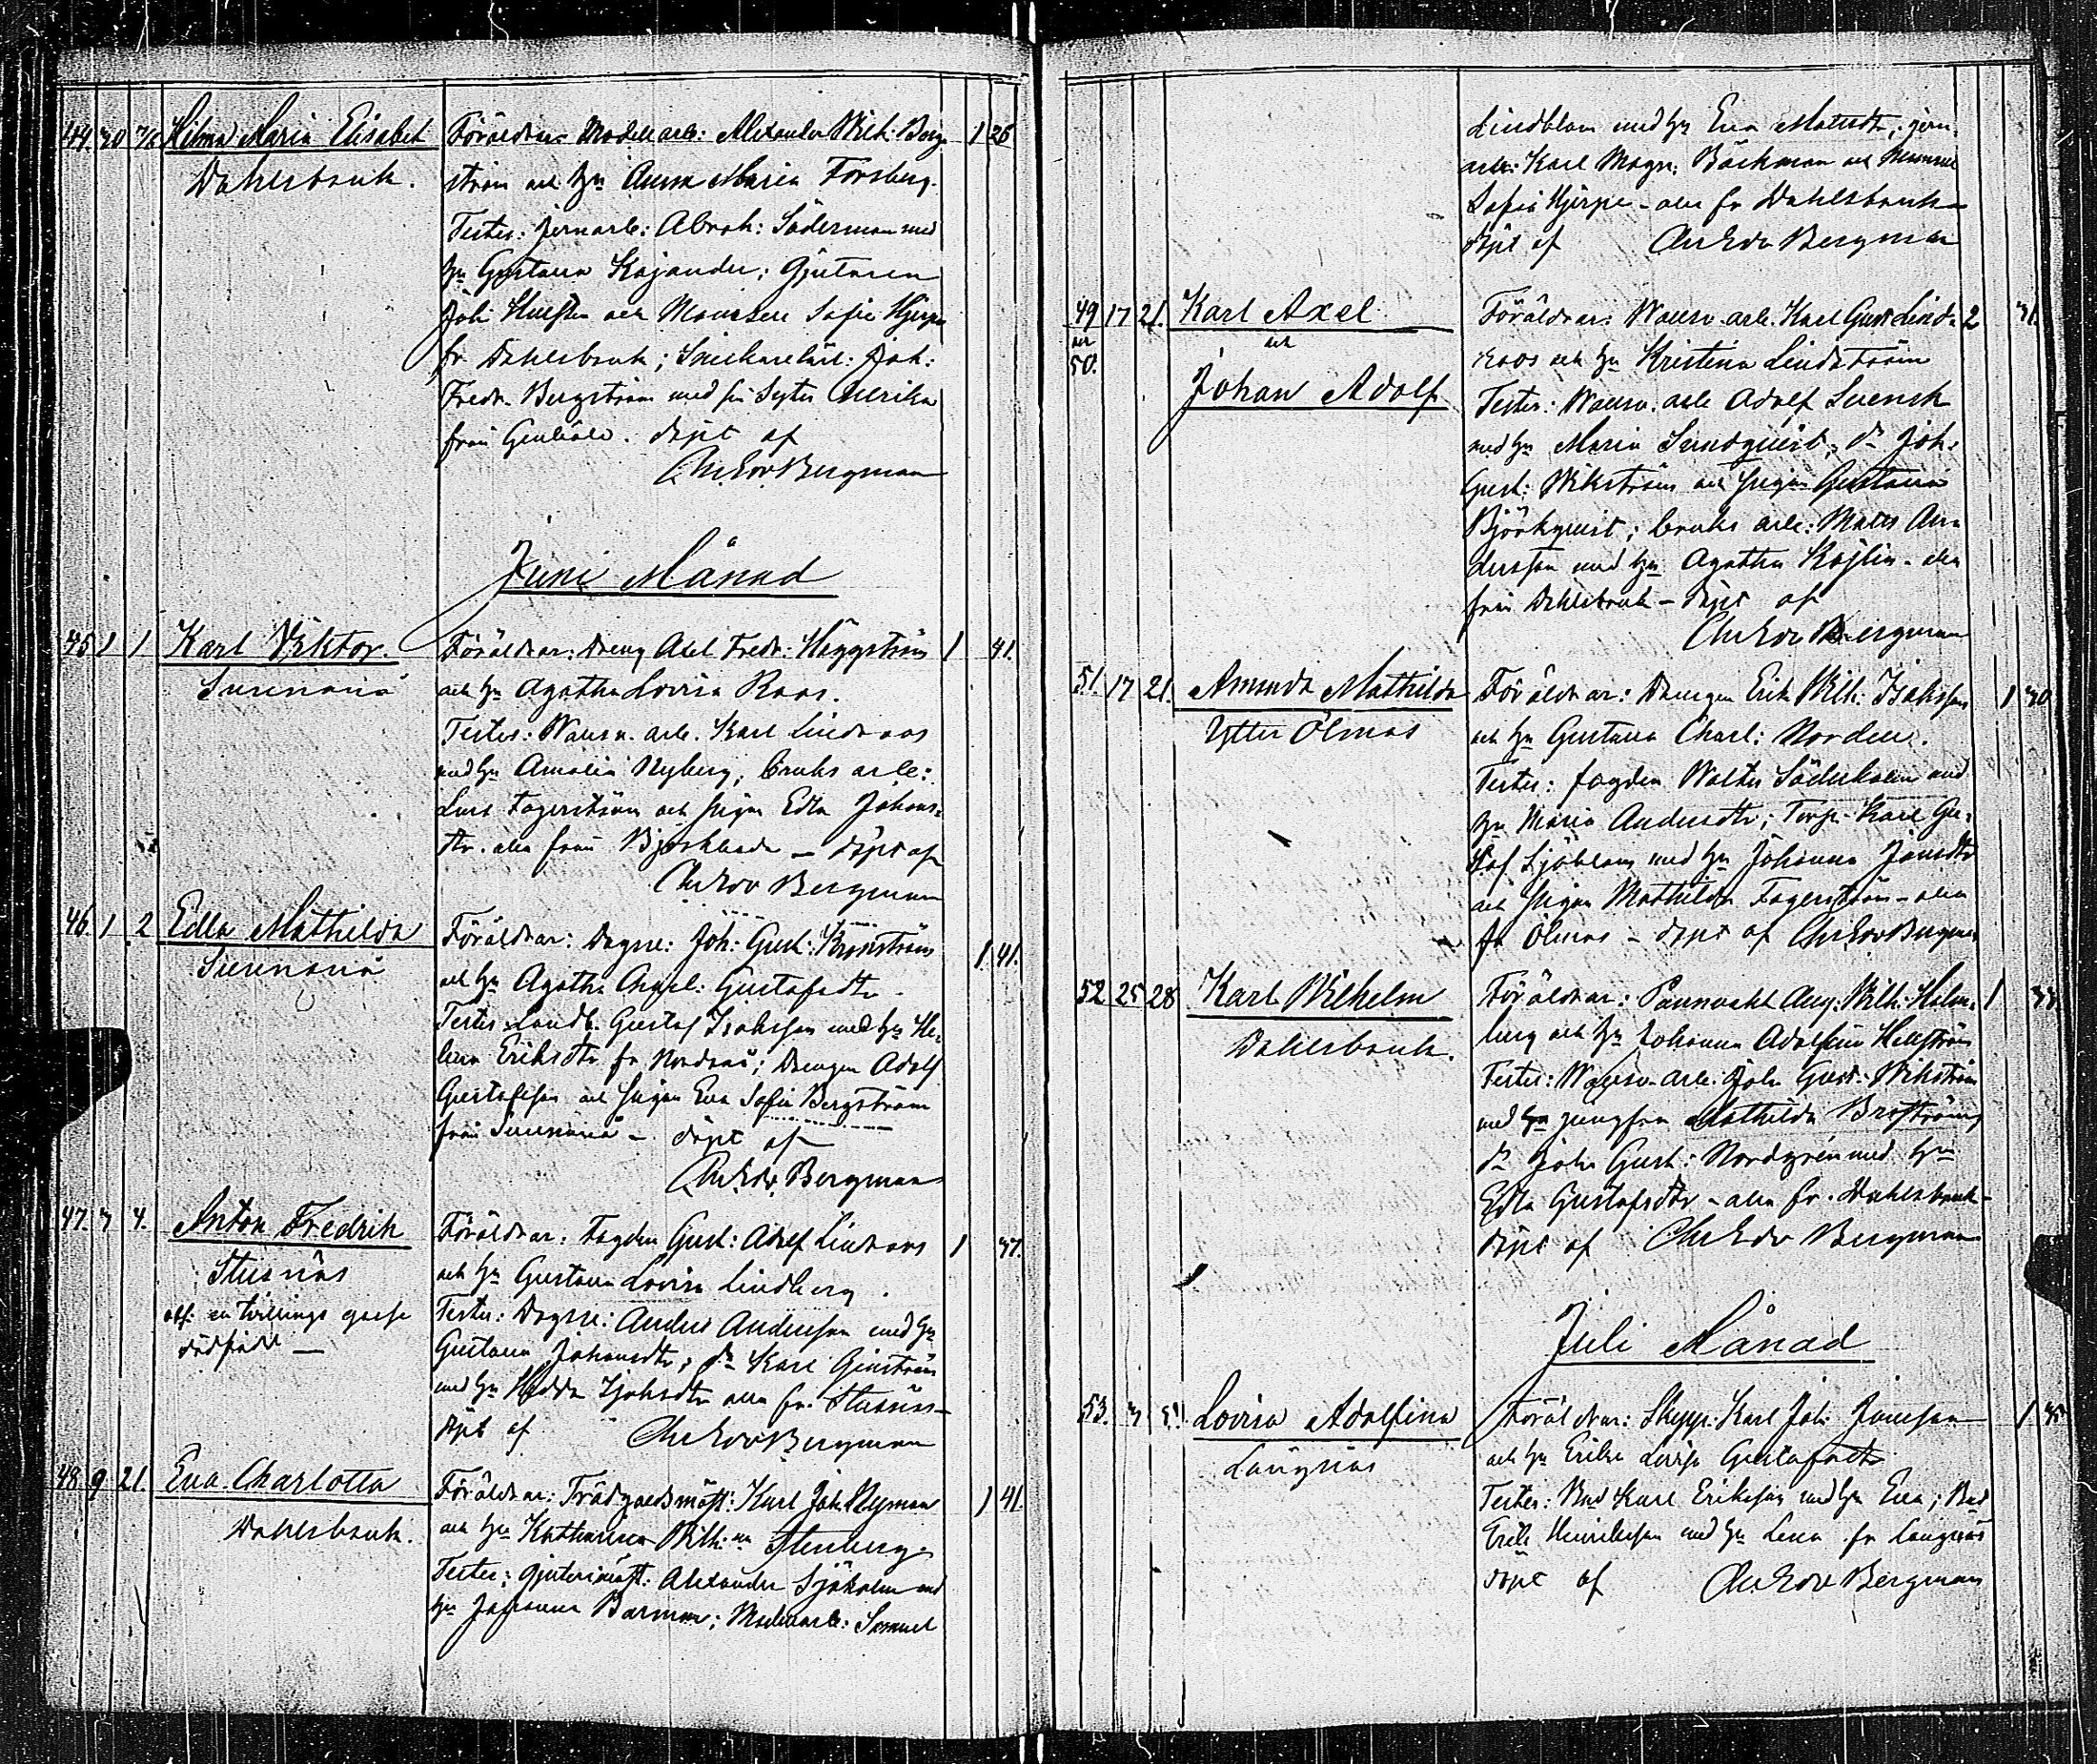 44. 30 7/6 Hilma Maria Elisabet
Dahlsbruk.
Föräldrar: Modellarb: Alexander Wilh: Berg- 1 26
ström och hu Anna Maria Forsberg.
Testes: jernarb: Abrah: Söderman med
hu Gustava Kajander; Gjutaren
Joh: och Mamsell Sofie Hjerpe
fr Dahlsbruk; Joh:
Fredr. Bergström med sin Syster Ulrika
från döpt af
Chr Edv Bergman
Juni Månad
45 1 1 Karl Viktor.
Föräldrar: Dreng Axel Fredr: Häggström 1 41.
och hu Agatha Lovisa Roos.
Testes: Walsv. arb. Karl Lindroos
med hu Amalia Nyberg, bruks arb:
Lars Fagerström och pigan Edla Johans-
dtr. alla från Björkboda – döpt af
Chr Edv Bergman
46. 1 2 Edla Mathilda
Föräldrar: Dagsv: Joh: Gust: 1. 41.
och hu Agatha Gustafsdtr
Testes: Landb. Gustaf Isaksson med hu He-
lena Eriksdtr fr Nordanå; Drengen Adolf
Gustafsson och pigan Eva Sofia Bergström
från – döpt af
Chr Edv. Bergman
47. 3 4. Anton Fredrik
Stusnäs
obs: en tvillings gosse
dödfödd —
Föräldrar: Fogden Gust: Adolf Lindroos 1 37.
och hu Gustava Lovisa Lindberg.
Testes: Dagsv: Anders Andersson med hu
Gustava Johansdtr; do Karl
med hu Hedda alla fr. Stusnäs –
döpt af Chr Edv Bergman
48 9 21. Eva Charlotta
Dahlsbruk.
Föräldrar: Trädgårdsmäst: Karl Joh Nyman 1 41.
och hu Katharina Wilh:na Stenberg.
Testes: gjuterimäst. Alexander Sjöholm med
hu Johanna Barman; Modellarb: Samuel
Lindblom med hu Eva Matsdtr, jern-
arb: Karl Magn: Bäckman och Mamsell
Sofie Hjerpe – alla fr Dahlsbruk –
döpt af Chr Edv Bergman
49 17 21. Karl Axel
och och
50. Johan Adolf
Föräldrar: Walsv. arb. Karl Gust Lind- 2 31.
roos och hu Kristina Lindström
Testes: Walsv. arb Adolf Svensk
med hu Maria Sundqvist; do Joh:
Gust: Wikström och pigan Gustava
Björkqvist; bruks arb: Mats An-
dersson med hu Agatha – alla
från Dahlsbruk – döpt af
Chr Edv Bergman
51. 17 21. Amanda Mathilda
Ytter Ölmos
Föräldrar: Drengen Erik Wilh: Isaksson 1 30
och hu Gustava Charl: Norden.
Testes: fogden Walter Söderholm med
hu Maria Andersdtr; Torp. Karl Gu-
staf Sjöblom med hu Johanna Jansdtr
och pigan Mathilda Fagerström – alla
fr Ölmos – döpt af Chr Edv Bergman
52 25 28 Karl Wilhelm
Dahlsbruk.
Föräldrar: Pannvakt Aug. Wilh: Holm- 1 33
berg och hu Johanna Adolfina Hellström
Testes: Walsv. arb. Joh Gust: Wikström
med jungfru Mathilda Broström;
do Joh Gust: Nordgrén med hu
Edla Gustafsdtr – alla fr. Dahlsbruk –
döpt af Chr Edv Bergman
Juli Månad
53. 3 5 Lovisa Adolfina
Långnäs
Föräldrar: Skepp. Karl Joh: Jansson 1 35
och hu Erika Lovisa Gustafsdtr
Testes: Bnd Karl Eriksson med hu Eva; Bnd
Erik Henriksson med hu Lena fr Långnäs
döpt af Chr Edv Bergman